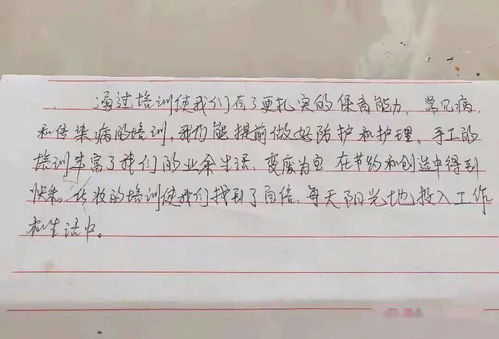 通过培训使我们有了更扎实的保育能力,常见病
和传染病的培训,我们能提前做好防护和护理,手工的
培训丰富了我们的业余生活,变废为宝在节约和创造中得到
快乐,化妆的培训使我们找到了自信,每天阳光地投入工作
和生活中。